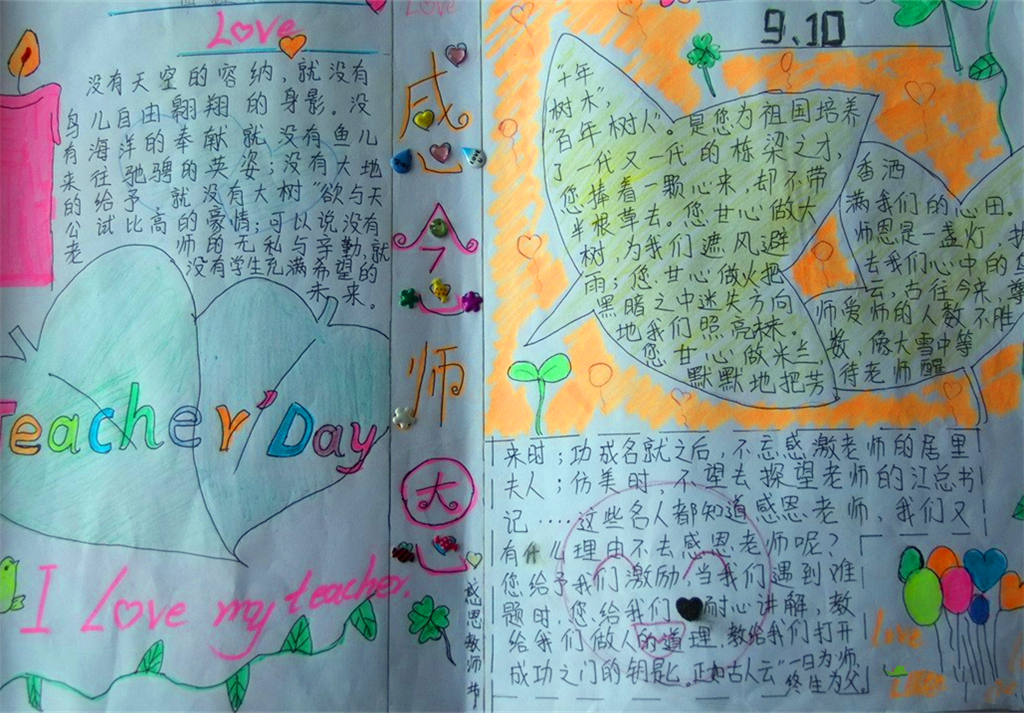 Love
没有天空的容纳，就没有
鸟儿自由翱翔的身影。没
有海洋的奉献就没有鱼儿
来往驰骋的英姿；没有大地
的给予，就没有大树“欲与天
公试比高的豪情；可以说没有
老师的无私与辛勤，就
没有学生充满希望的
未来。
Teacher' Day
I Love my teacher.
Love
感
心
令
心
师
大
心
感恩教师节
9.10
“十年
树木”，
“百年树人”。是您为祖国培养
了一代又一代的栋梁之才，
您捧着一颗心来，却不带
半根草去。您甘心做大
树，为我们遮风避
雨；您甘心做火把
黑暗之中迷失方向
地我们照亮未来。
您甘心做米兰
默默地把芳
香洒
满我们的心田。
师恩是一盏灯，
去我们心中的
云，古往今来，尊
师爱师的人数不胜
数，像大雪中等
待老师醒
来时；功成名就之后，不忘感激老师的居里
夫人；仿美时，不望去探望老师的江总书
记....这些名人都知道感恩老师，我们又
有什么理由不去感恩老师呢？
您给予我们激励，当我们遇到难
题时，您给我们耐心讲解，教
给我们做人的道理，教给我们打开
成功之门的钥匙。正如古人云“一日为师，
终生为父。
Love